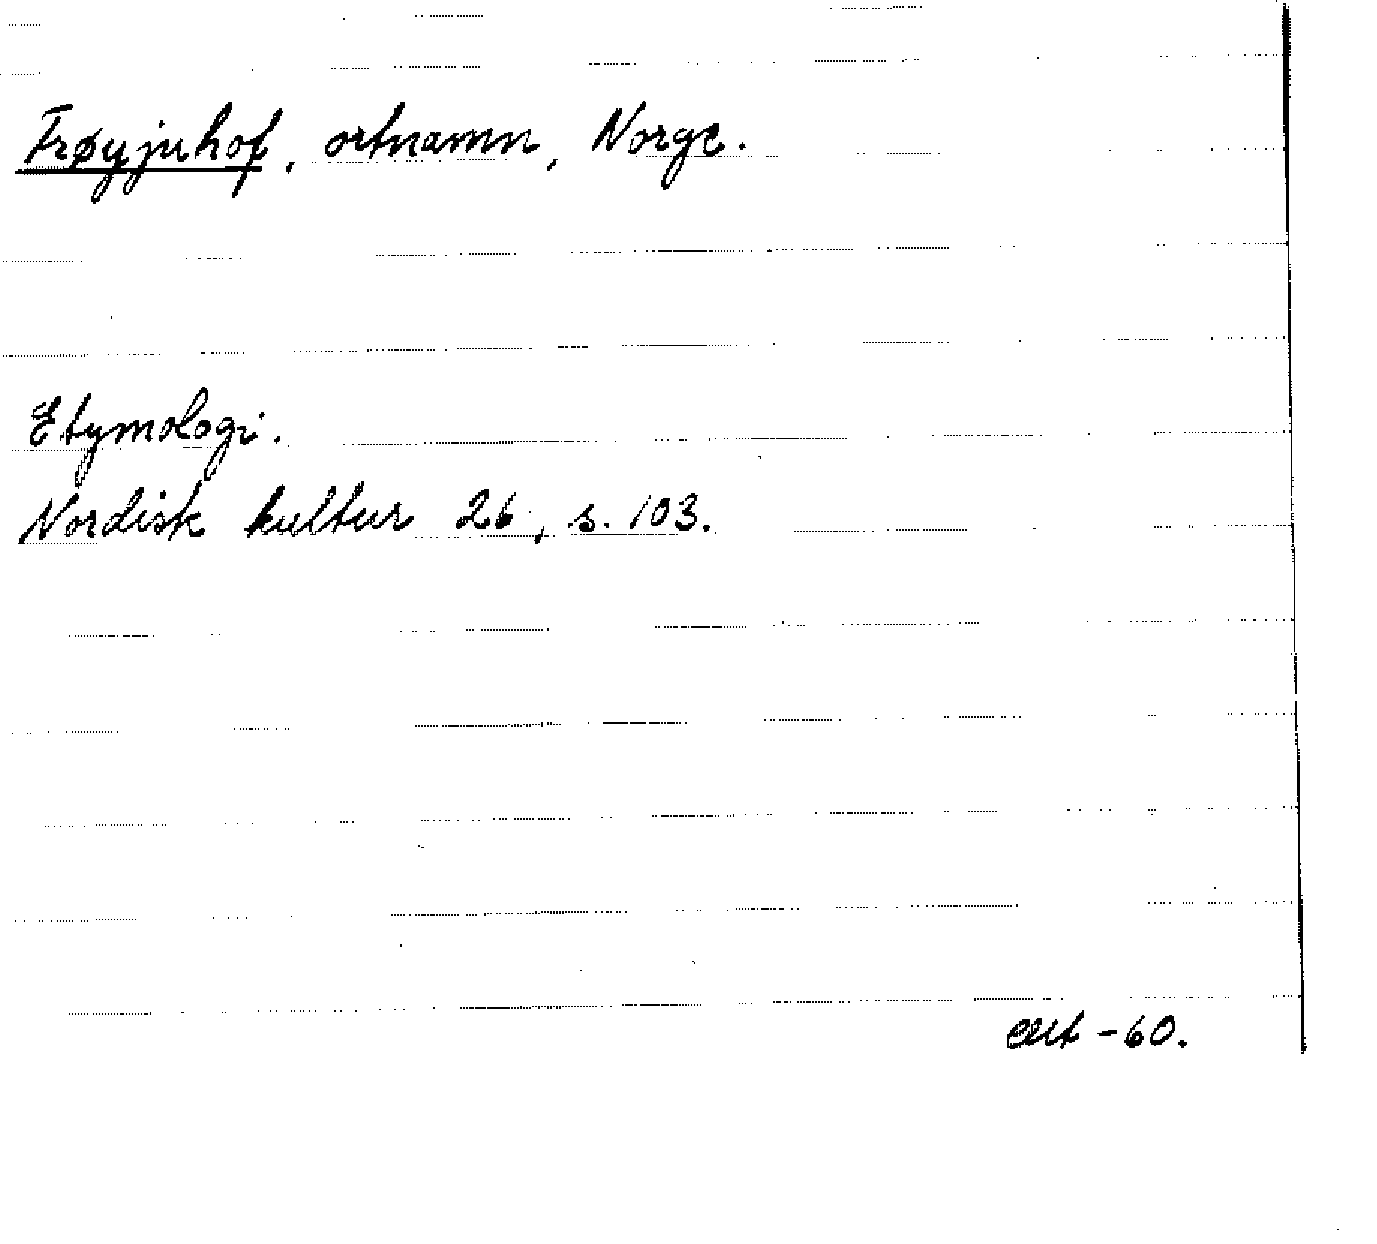 Frøyjuhof, ortnamn, Norge.
Etymologi.
Nordisk kultur 26, s. 103.
-60.